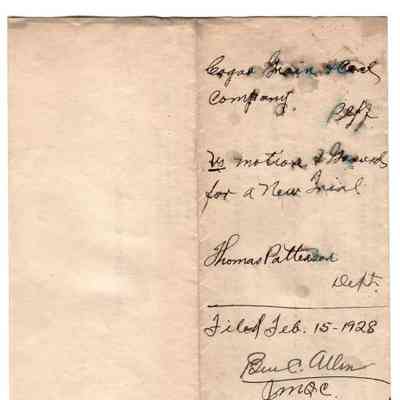 Cogar Grain & Coal
Company. Plff
Vs motion & Grounds
for a New Trial
Thomas Patterson
Deft.
Filed Feb. 15-1928
Ben C. Allin